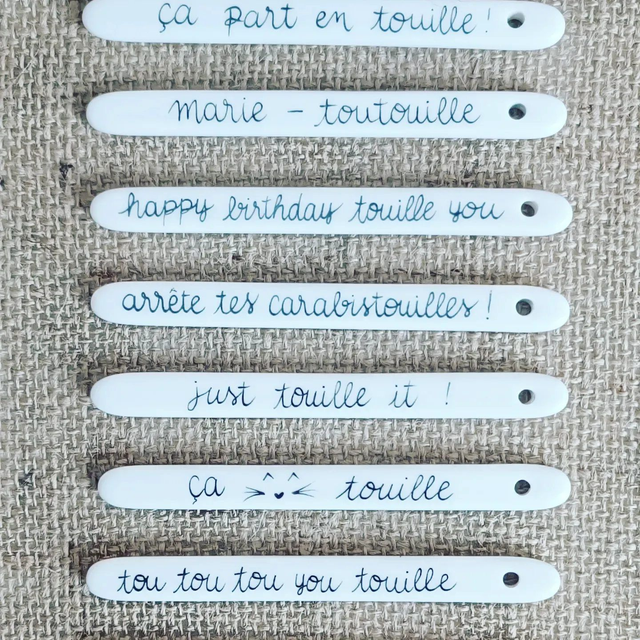 ça part en touille !
marie - toutouille
happy birthday touille you
arrête tes carabistouilles !
just touille it !
ça touille
tou tou tou you touille